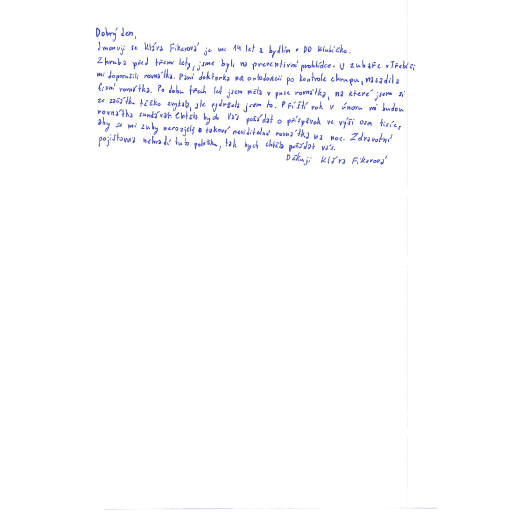 Dobrý den,
Jmenuji se Klára Fikerová je mi 14 let a bydlím v DD Klubíčko.
Zhruba před třemi lety, jsme byli na preventivní prohlídce. U zubaře v Třebíči
mi doporučili rovnátka. Paní doktorka na ortodoncii po kontrole chrupu, nasadila
fixní rovnátka. Po dobu třech let jsem měla v puse rovnátka, na které jsem si
ze začátku těžko zvykala, ale vydržela jsem to. Příští rok v únoru mi budou
rovnátka sundávat. Chtěla bych Vás požádat o příspěvek ve výši osm tisíc,
aby se mi zuby nerozjely o takové neviditelné rovnátka na noc. Zdravotní
pojišťovna nehradí tuto položku, tak bych chtěla požádat vás.
Děkuji Klára Fikerová